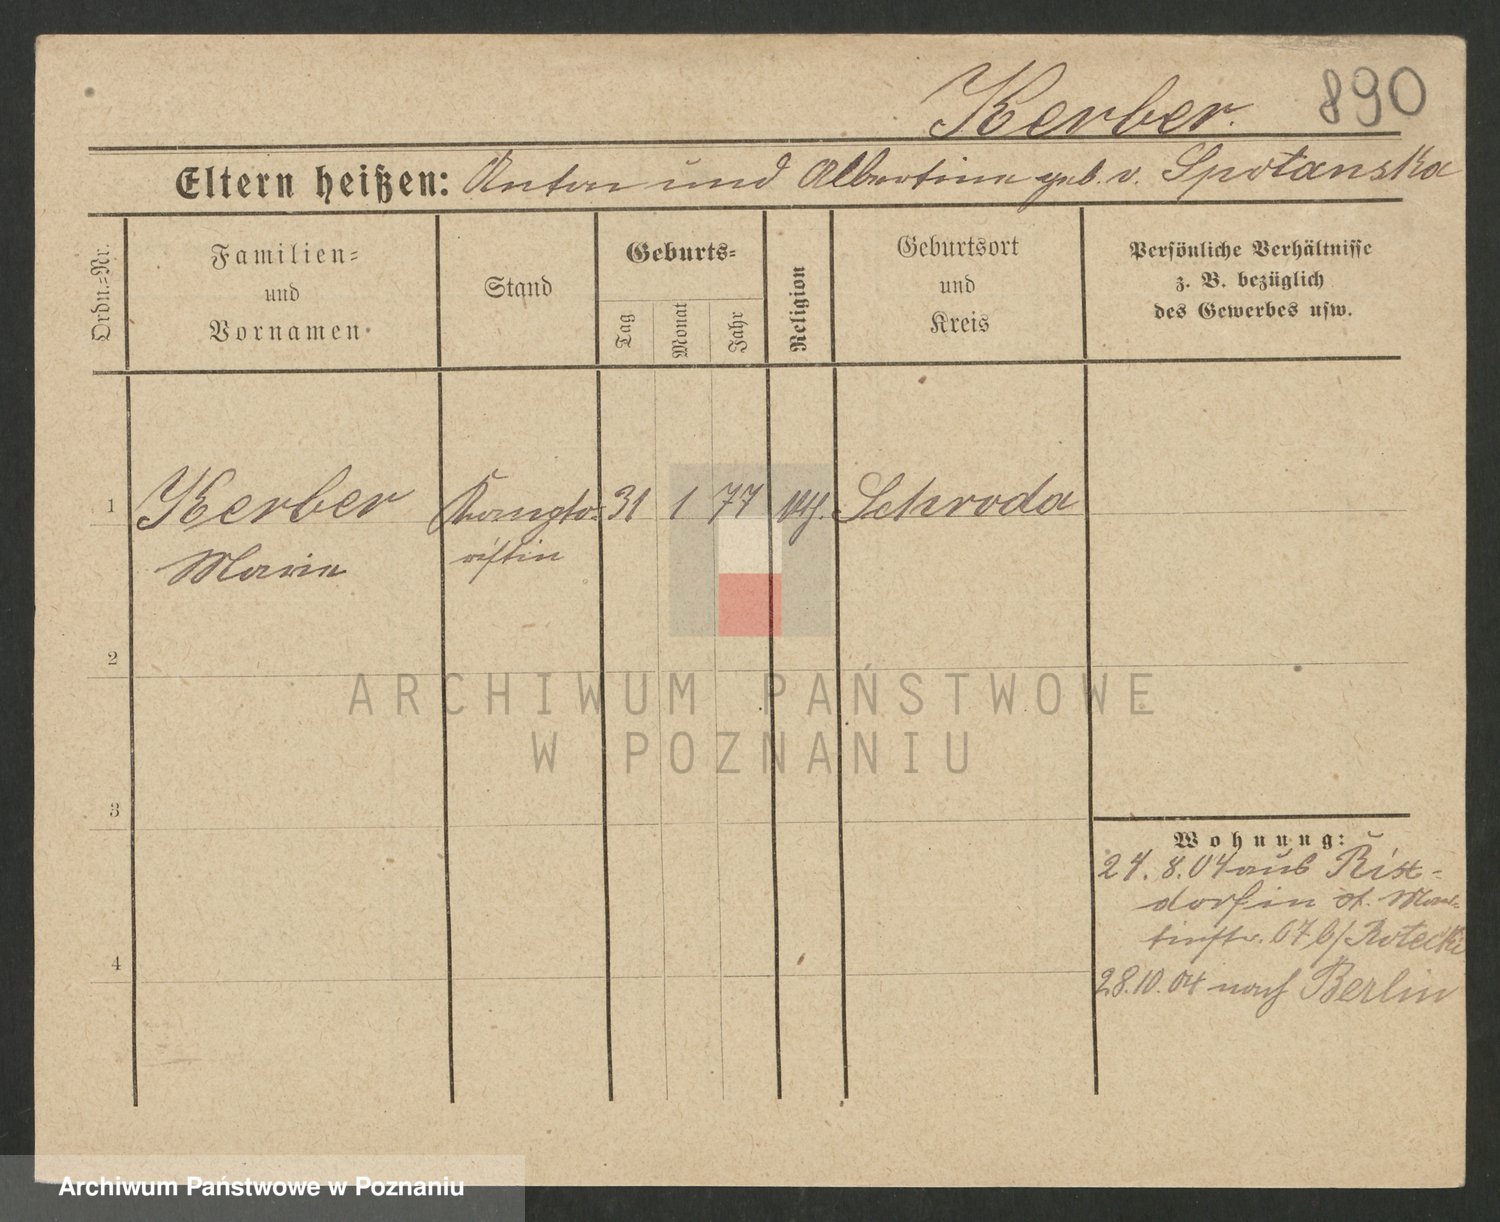 Kerber.
890
Eltern heißen: Anton und Albertine geb. v. Spotanska
Ordn.-Nr.
Familien-
und
Vornamen
Stand
Geburts-
Tag
Monat
Jahr
Religion
Geburtsort
und
Kreis
Persönliche Verhältnisse
z. B. bezüglich
des Gewerbes usw.
1
Kerber
Marie
Kompto-
ristin
31
1
77
Schroda
2
3
4
Wohnung:
24. 8. 04 aus Rix-
dorf in St. Mar-
tinstr. 67 b/ Rotecki
28.10.04 nach Berlin
ARCHIWUM PAŃSTWOWE
W POZNANIU
Archiwum Państwowe w Poznaniu